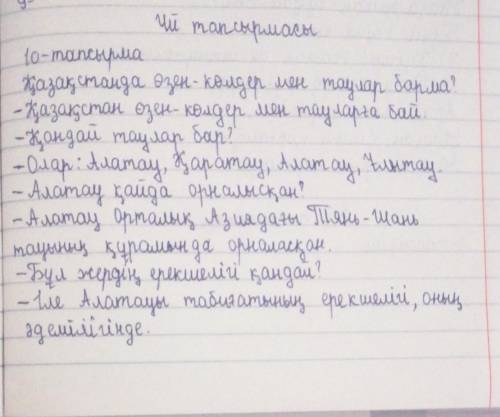 Үй тапсырмасы
10-тапсырма
Қазақстанда өзен-көлдер мен таулар барма?
-Қазақстан өзен-көлдер мен тауларға бай.
-Қандай таулар бар?
-Олар: Алатау, Қаратау, Алатау, Ұлытау.
-Алатау қайда орналысқан?
-Алатау Орталық Азиядағы Тянь-Шань
тауының құрамында орналасқан.
-Бұл жердің ерекшелігі қандай?
-Іле Алатауы табиғатының ерекшелігі, оның
әдемілігінде.